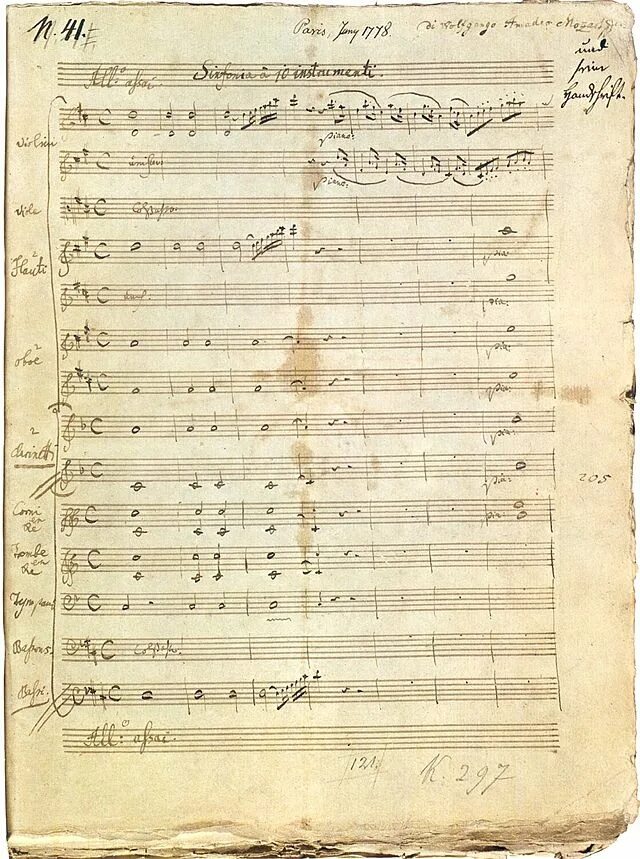 N. 41.
Paris, Juny 1778.
Di Wolfgango Amadeo Mozart
und
sein
Handschrift.
Sinfonia à 10 instrumenti.
All:º assai.
violini
piano:
unisoni
piano:
viole
Col Basso.
2
Flauti
pia:
unis.
pia:
2
oboe
pia:
pia:
2
clarinetti
pia:
pia:
205
Corni
en
Re
pia:
Trombe
en
Re
Tympani
Bassons
Col Basso.
Bassi.
All:º assai.
121
K. 297